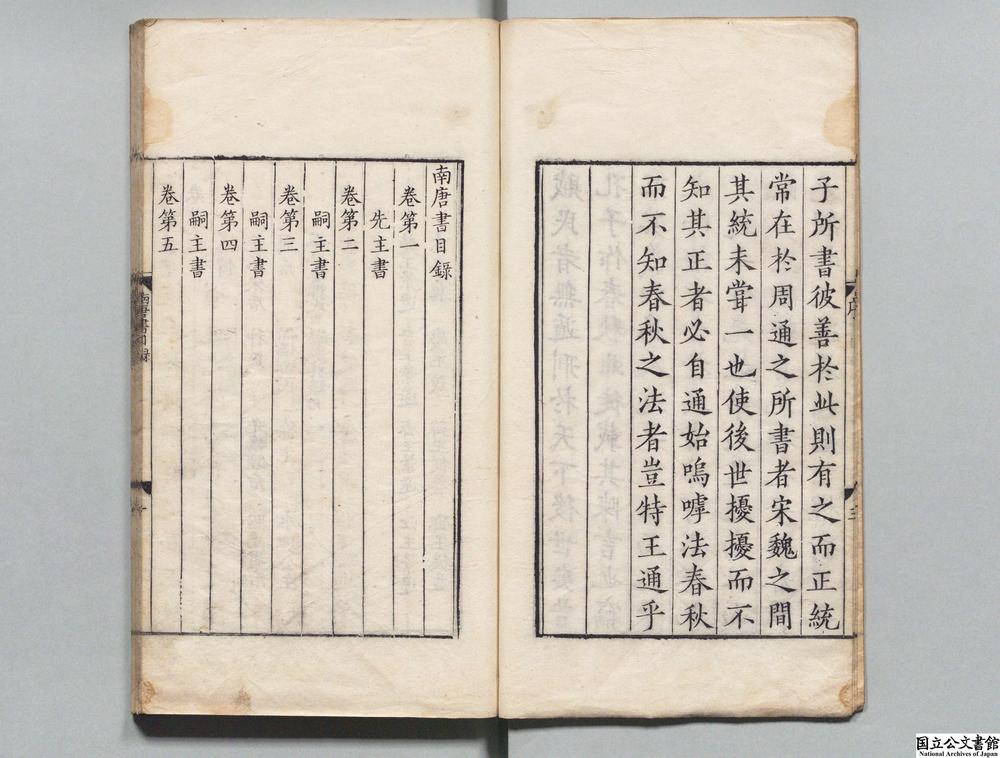 子所書彼善於此則有之而正統
常在於周通之所書者宋魏之間
其統未甞一也使後世擾擾而不
知其正者必自通始嗚嘑法春秋
而不知春秋之法者豈特王通乎
南唐書目錄
卷第一
先主書
卷第二
嗣主書
卷第三
嗣主書
卷第四
嗣主書
卷第五
南唐書目錄
国立公文書館
National Archives of Japan